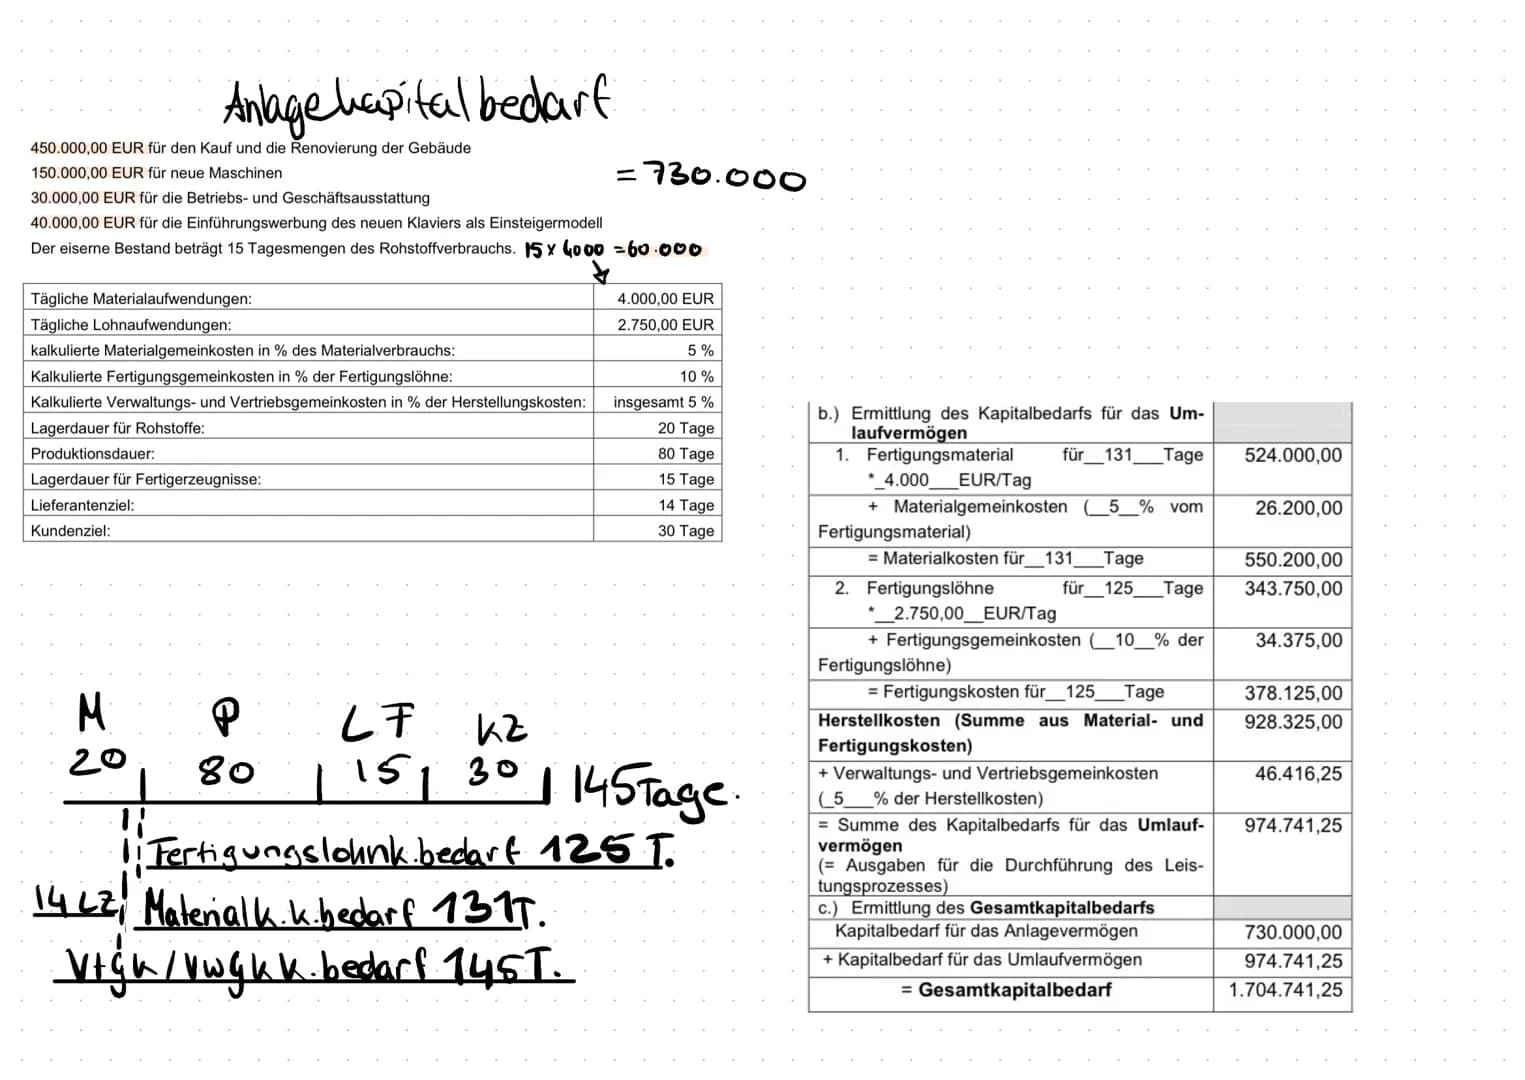 Anlagekapitalbedarf
450.000,00 EUR für den Kauf und die Renovierung der Gebäude
150.000,00 EUR für neue Maschinen
= 730.000
30.000,00 EUR für die Betriebs- und Geschäftsausstattung
40.000,00 EUR für die Einführungswerbung des neuen Klaviers als Einsteigermodell
Der eiserne Bestand beträgt 15 Tagesmengen des Rohstoffverbrauchs. 15 x 4000 = 60.000
Tägliche Materialaufwendungen: 4.000,00 EUR
Tägliche Lohnaufwendungen: 2.750,00 EUR
kalkulierte Materialgemeinkosten in % des Materialverbrauchs: 5 %
Kalkulierte Fertigungsgemeinkosten in % der Fertigungslöhne: 10 %
Kalkulierte Verwaltungs- und Vertriebsgemeinkosten in % der Herstellungskosten: insgesamt 5 %
Lagerdauer für Rohstoffe: 20 Tage
Produktionsdauer: 80 Tage
Lagerdauer für Fertigerzeugnisse: 15 Tage
Lieferantenziel: 14 Tage
Kundenziel: 30 Tage
M P LF KZ
20 80 15 30 145 Tage.
Fertigungslohnk.bedarf 125 T.
14 LZ Materialk.k.bedarf 131T.
Vtgk/Vwgk K.bedarf 145T.
b.) Ermittlung des Kapitalbedarfs für das Um-
laufvermögen
1. Fertigungsmaterial für__131___Tage 524.000,00
*_4.000___EUR/Tag
+ Materialgemeinkosten (__5__% vom 26.200,00
Fertigungsmaterial)
= Materialkosten für__131___Tage 550.200,00
2. Fertigungslöhne für__125___Tage 343.750,00
*__2.750,00__EUR/Tag
+ Fertigungsgemeinkosten (__10__% der 34.375,00
Fertigungslöhne)
= Fertigungskosten für__125___Tage 378.125,00
Herstellkosten (Summe aus Material- und 928.325,00
Fertigungskosten)
+ Verwaltungs- und Vertriebsgemeinkosten 46.416,25
(_5___% der Herstellkosten)
= Summe des Kapitalbedarfs für das Umlauf- 974.741,25
vermögen
(= Ausgaben für die Durchführung des Leis-
tungsprozesses)
c.) Ermittlung des Gesamtkapitalbedarfs
Kapitalbedarf für das Anlagevermögen 730.000,00
+ Kapitalbedarf für das Umlaufvermögen 974.741,25
= Gesamtkapitalbedarf 1.704.741,25